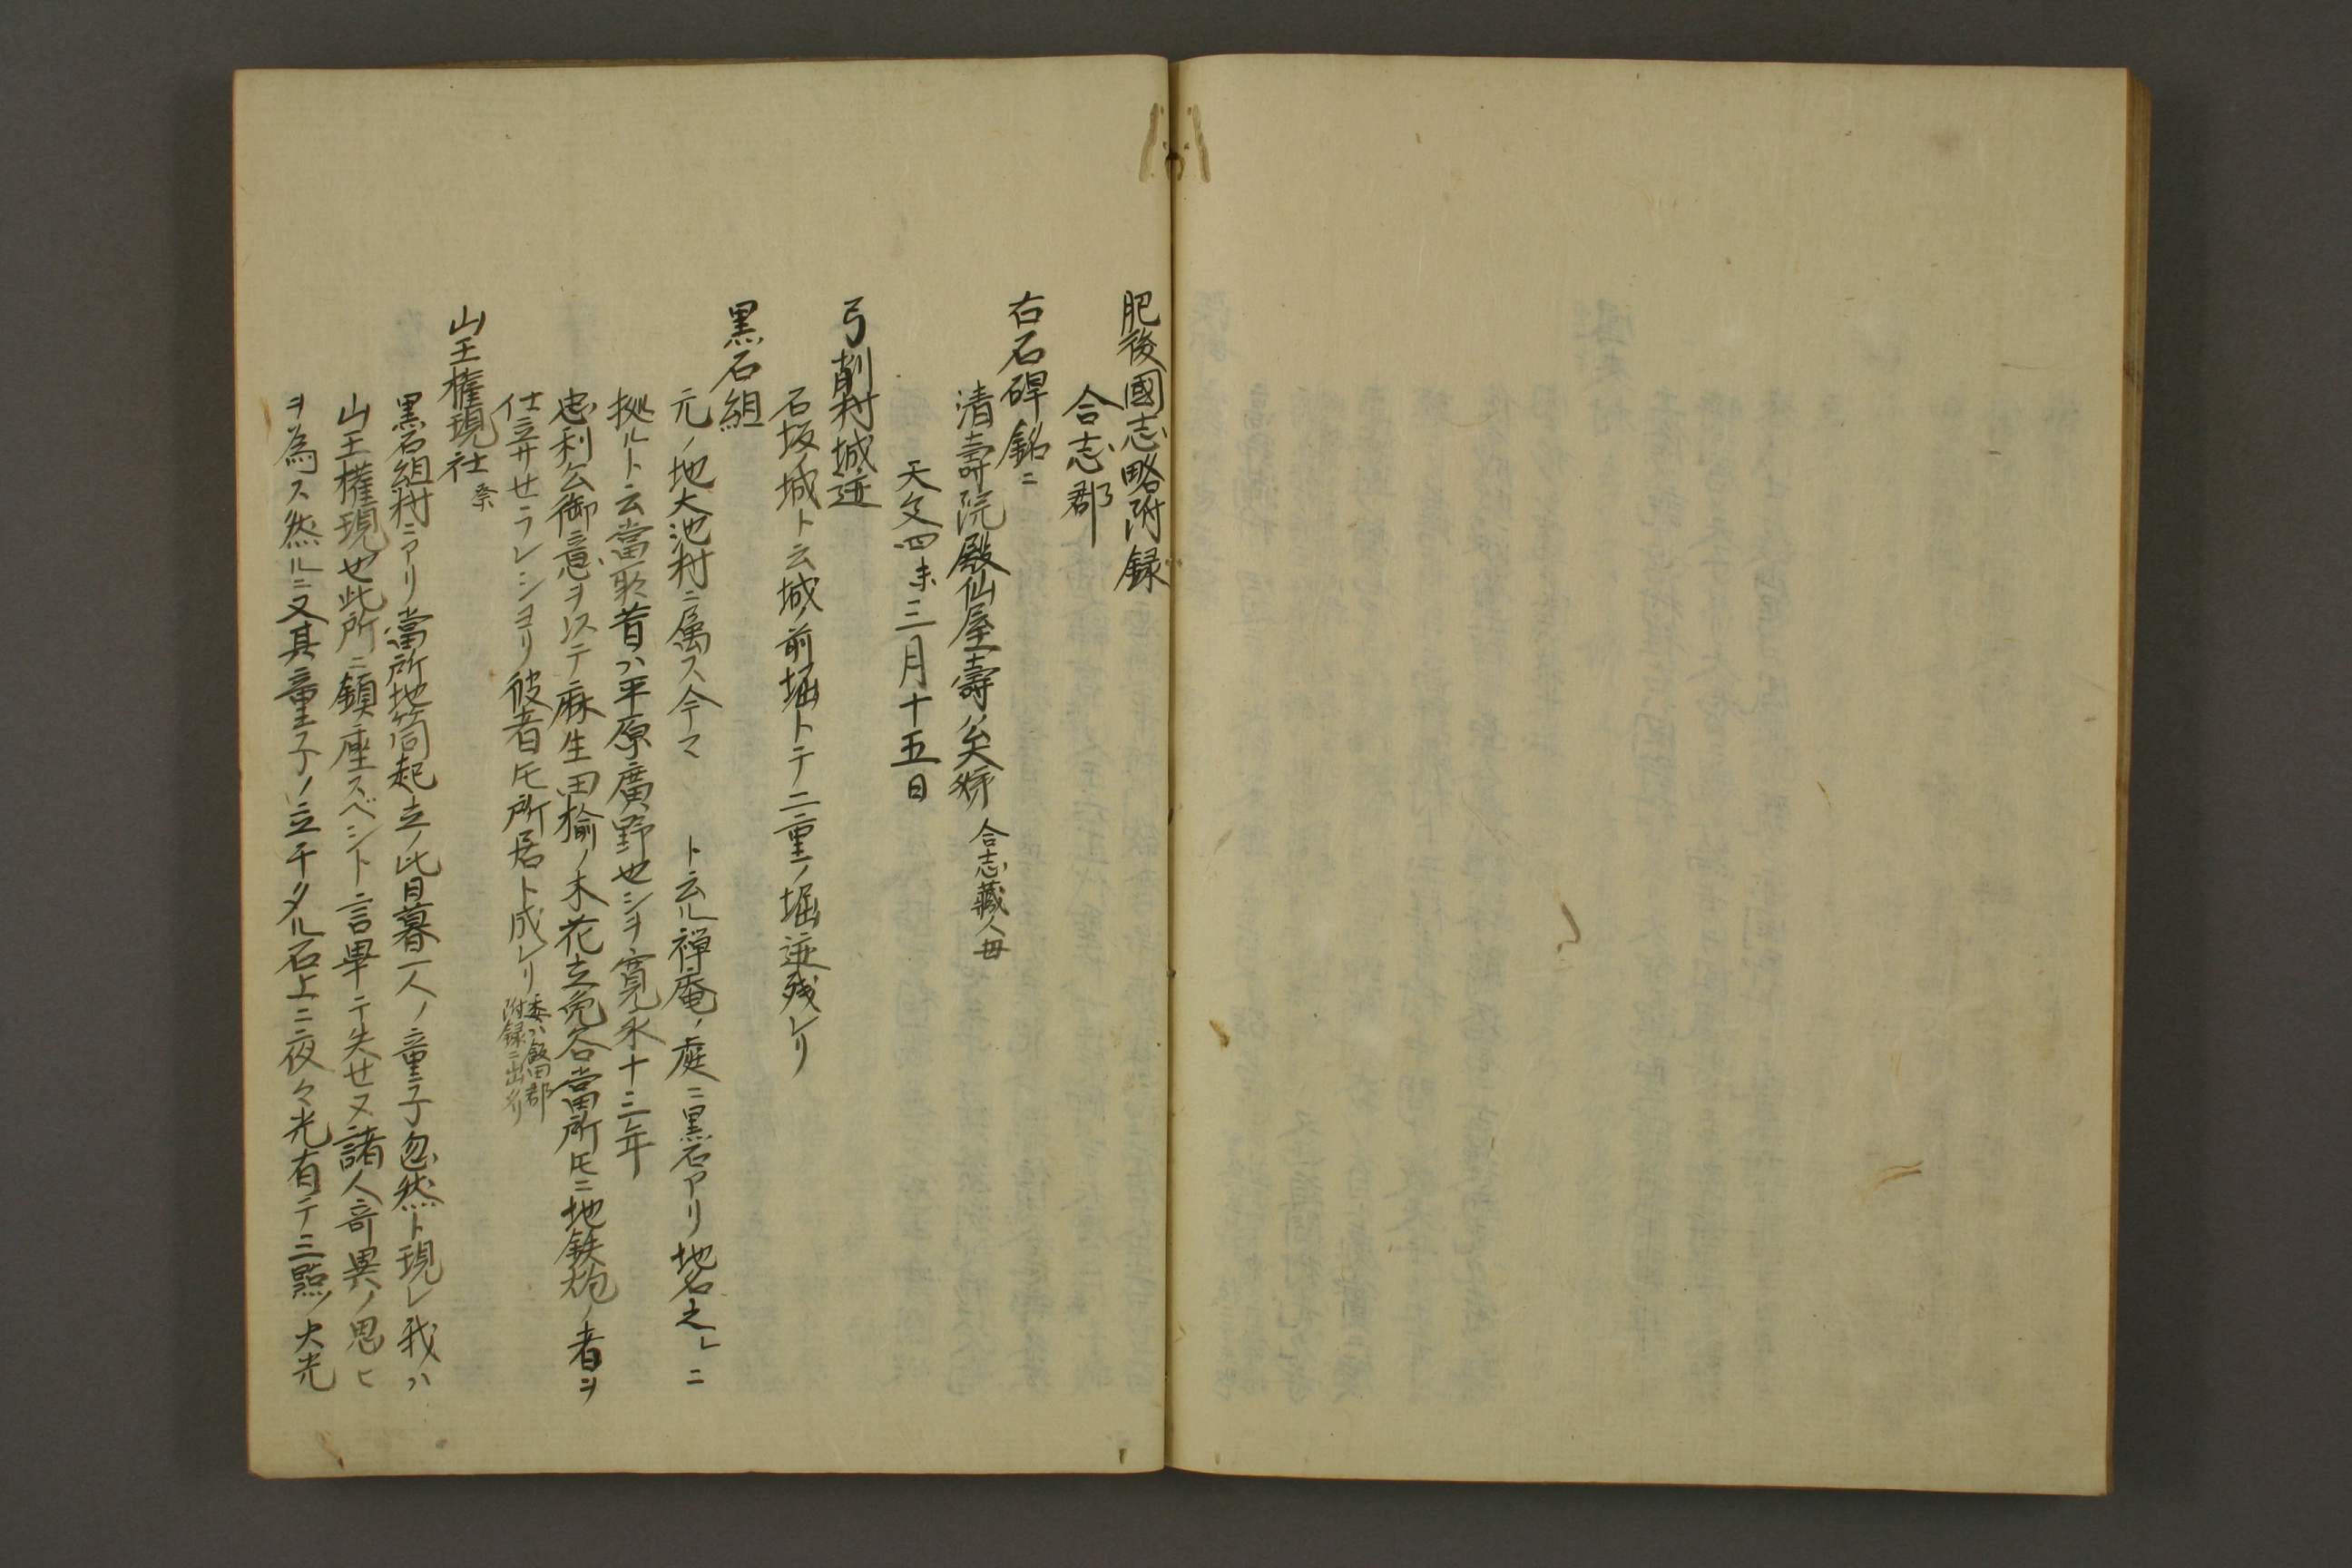 肥後國志略附録
合志郡
右石碑銘ニ
清壽院殿仙屋壽
合志藏人母
天文四未三月十五日
弓削村城迹
石坂ノ城ト云城ノ前堀トテ二重ノ堀迹残レリ
黒石組
元ノ地大池村ニ属ス今マ　ト云ル禅庵ノ庭ニ黒石アリ地名之レニ
拠ルト云當所昔ハ平原廣野也シヲ寛永十三年
忠利公御意ヲ以テ麻生田楡ノ木花立兔谷當所圧ニ地鉄炮ノ者ヲ
仕立サセラレシヨリ彼者圧所居ト成レリ委ハ飽田郡附録ニ出タリ
山王権現社 祭
黒石組村ニアリ當所地筒起立ノ比日暮一人ノ童子忽然ト現レ我ハ
山王権現也此所ニ鎮座スベシト言畢テ失セヌ諸人奇異ノ思ヒ
ヲ為ス然ルニ又其童子ノ立チタル石上ニ夜々光有テ三點ノ大光